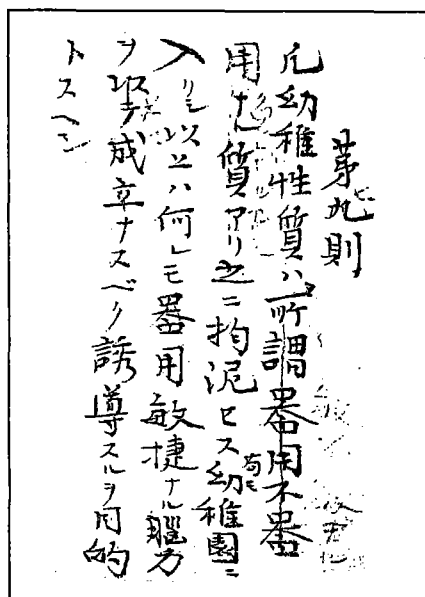 第九則
凡幼稚性質ハ所謂器用不器
用ナル質アリ之ニ拘泥セス苟モ幼稚園ニ
入リシ以上ハ何レモ器用敏捷ナル腦力
ヲ成立ナスベク誘導スルヲ目的
トスヘシ